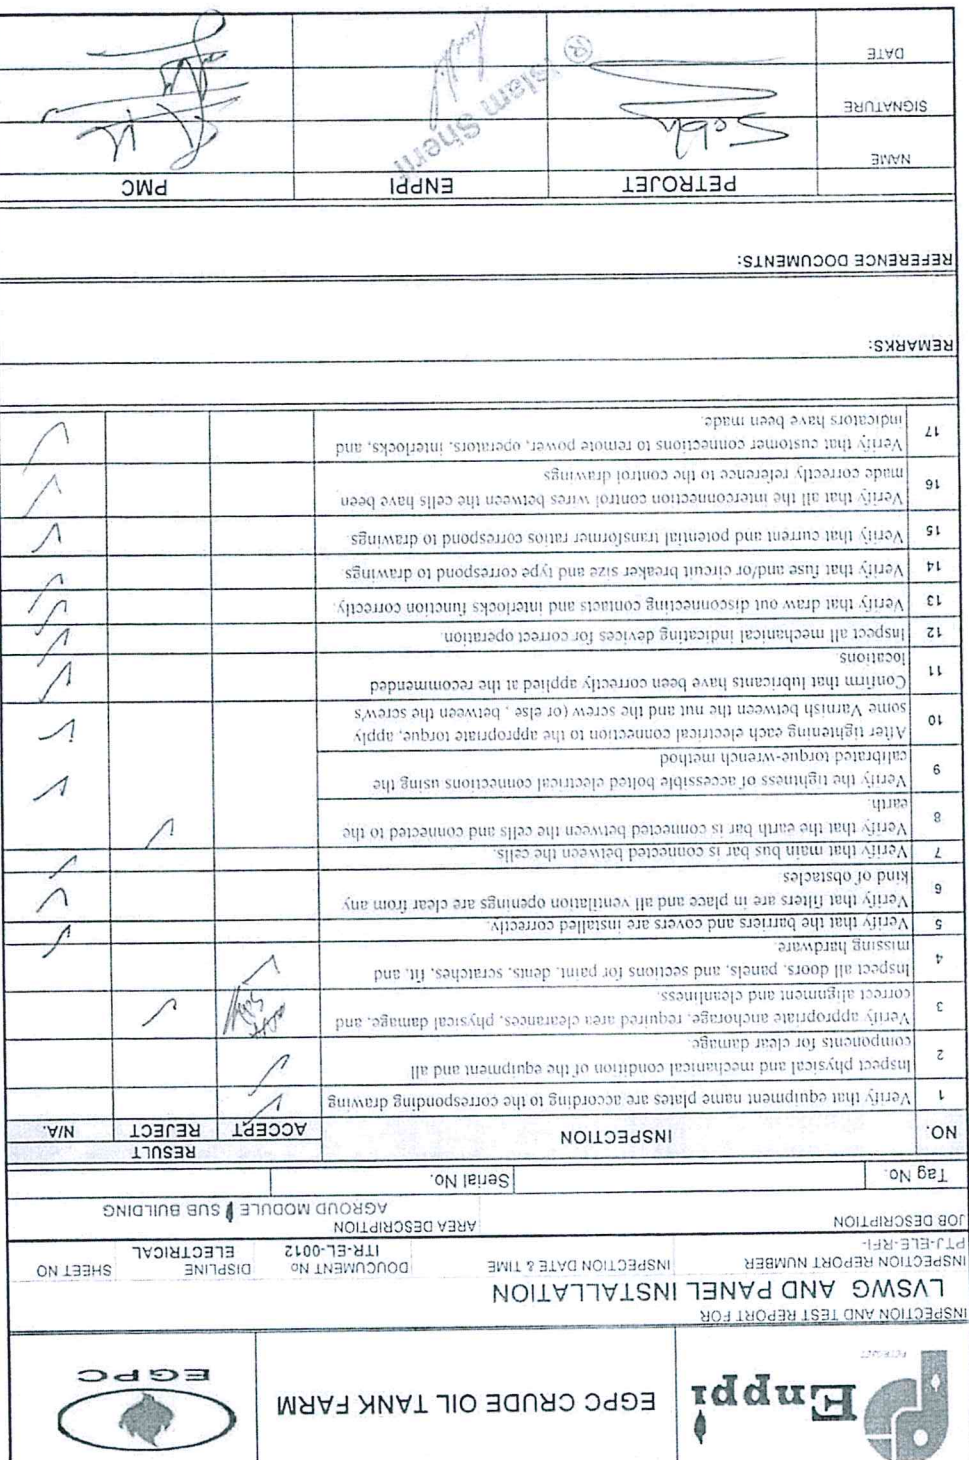 PETROJET
Enppi
EGPC CRUDE OIL TANK FARM
EGPC
INSPECTION AND TEST REPORT FOR
LVSWG AND PANEL INSTALLATION
INSPECTION REPORT NUMBER
PTJ-ELE-RFI-
INSPECTION DATE & TIME
DOUCUMENT No
ITR-EL-0012
DISPLINE
ELECTRICAL
SHEET NO
JOB DESCRIPTION
AREA DESCRIPTION
AGROUD MODULE SUB BUILDING
Tag No.
Serial No.
NO.
INSPECTION
RESULT
ACCEPT
REJECT
N/A.
1
Verify that equipment name plates are according to the corresponding drawing
2
Inspect physical and mechanical condition of the equipment and all
components for clear damage.
3
Verify appropriate anchorage, required area clearances, physical damage, and
correct alignment and cleanliness.
4
Inspect all doors, panels, and sections for paint, dents, scratches, fit, and
missing hardware.
5
Verify that the barriers and covers are installed correctly.
6
Verify that filters are in place and all ventilation openings are clear from any
kind of obstacles
7
Verify that main bus bar is connected between the cells.
8
Verify that the earth bar is connected between the cells and connected to the
earth.
9
Verify the tightness of accessible bolted electrical connections using the
calibrated torque-wrench method
10
After tightening each electrical connection to the appropriate torque, apply
some Varnish between the nut and the screw (or else , between the screw's
11
Confirm that lubricants have been correctly applied at the recommended
locations
12
Inspect all mechanical indicating devices for correct operation
13
Verify that draw out disconnecting contacts and interlocks function correctly.
14
Verify that fuse and/or circuit breaker size and type correspond to drawings
15
Verify that current and potential transformer ratios correspond to drawings
16
Verify that all the interconnection control wires between the cells have been
made correctly reference to the control drawings
17
Verify that customer connections to remote power, operators, interlocks, and
indicators have been made.
REMARKS:
REFERENCE DOCUMENTS:
PETROJET
ENPPI
PMC
NAME
SIGNATURE
DATE
® Islam Sherif